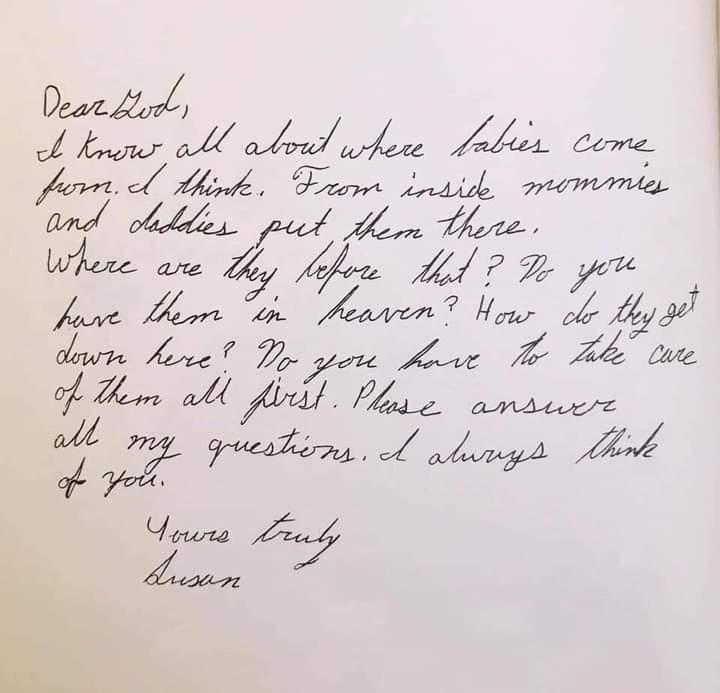 Dear God,
I know all about where babies come
from. I think. From inside mommies
and daddies put them there.
Where are they before that? Do you
have them in heaven? How do they get
down here? Do you have to take care
of them all first. Please answer
all my questions. I always think
of you.
Yours truly
Susan